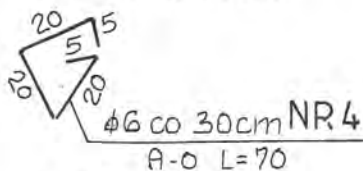 20
5
5
20
20
φ6 co 30cm NR.4
A-0 L=70